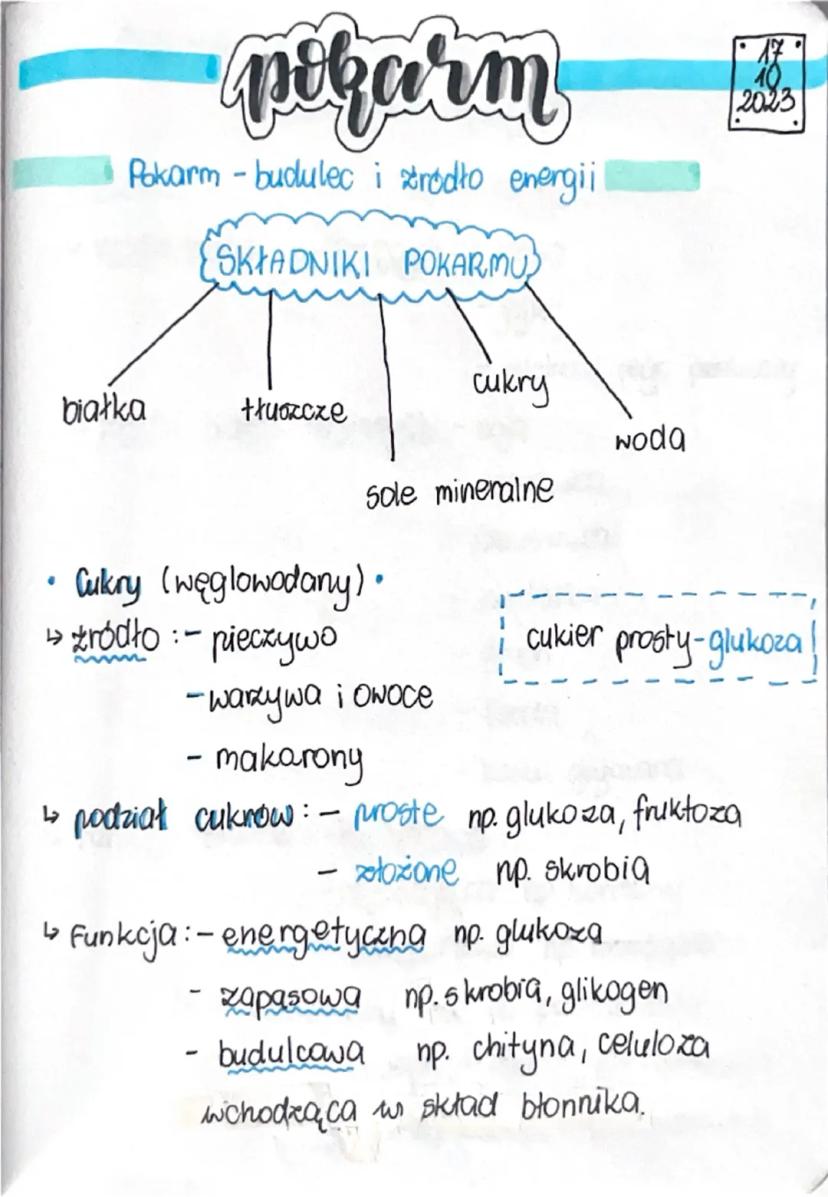 pokarm
17
10
2023
Pokarm - budulec i źródło energii
SKŁADNIKI POKARMU
białka
tłuszcze
sole mineralne
cukry
woda
• Cukry (węglowodany) •
↳ źródło :- pieczywo
- warzywa i owoce
- makarony
cukier prosty - glukoza
↳ podział cukrów : - proste np. glukoza, fruktoza
- złożone np. skrobia
↳ Funkcja :- energetyczna np. glukoza
- zapasowa np. skrobia, glikogen
- budulcowa np. chityna, celuloza
wchodząca w skład błonnika.